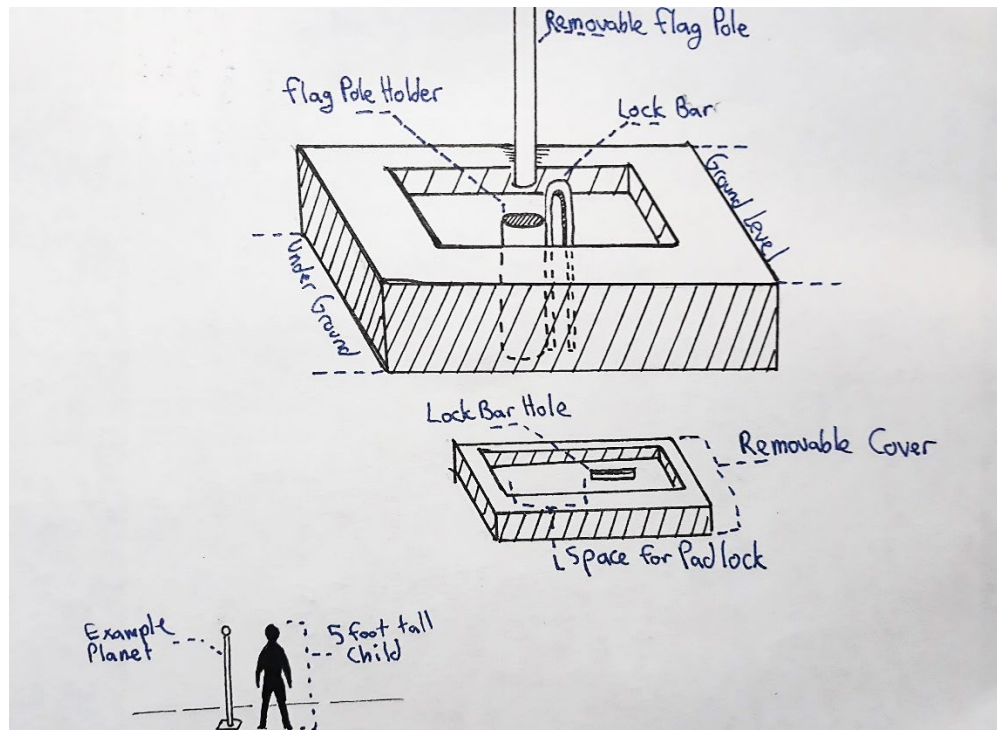 Removable Flag Pole
flag Pole Holder
Lock Bar
Ground Level
Under Ground
Lock Bar Hole
Removable Cover
Space for Padlock
Example
Planet
5 foot tall
Child